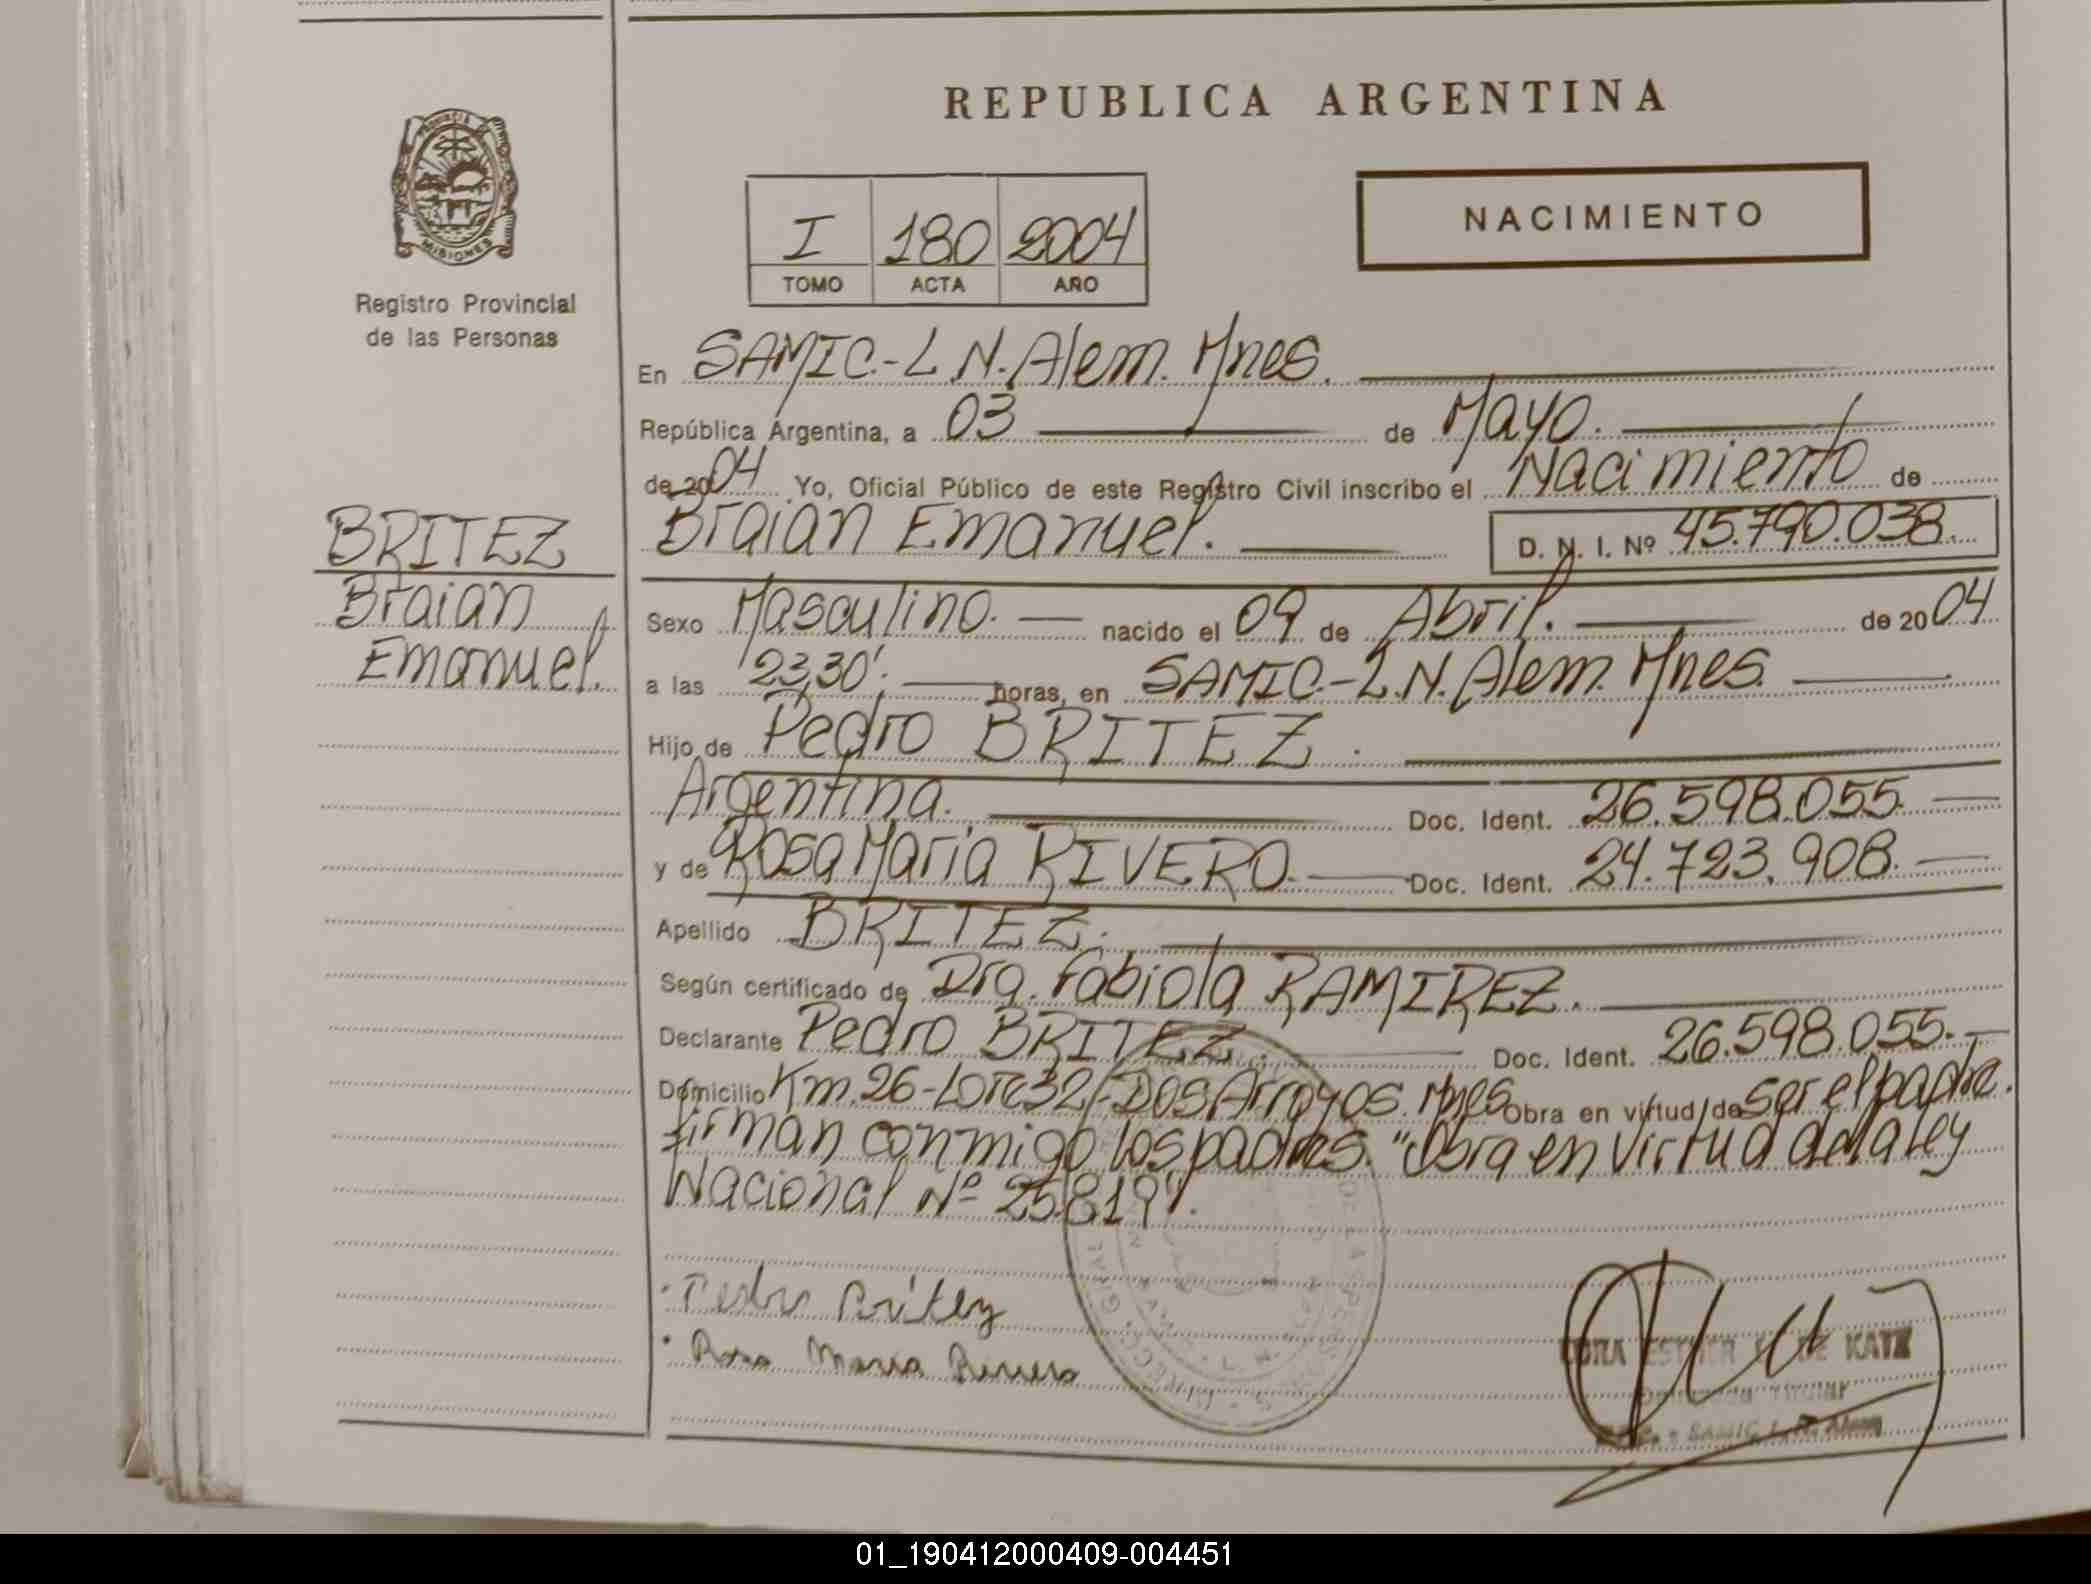 REPUBLICA ARGENTINA
PROVINCIA DE
MISIONES
Registro Provincial
de las Personas
NACIMIENTO
I 180 2004
TOMO ACTA AÑO
En SAMIC.-L.N.Alem. Mnes.
República Argentina, a 03 de Mayo.
de 2004 Yo, Oficial Público de este Registro Civil inscribo el Nacimiento de
Braian Emanuel. D. N. I. Nº 45.790.038.
BRITEZ
Braian
Emanuel.
Sexo Masculino. nacido el 09 de Abril. de 2004
a las 23,30'. horas, en SAMIC.-L.N.Alem. Mnes.
Hijo de Pedro BRITEZ.
Argentina. Doc. Ident. 26.598.055.
y de Rosa Maria RIVERO. Doc. Ident. 24.723.908.
Apellido BRITEZ.
Según certificado de Dra. Fabiola RAMIREZ.
Declarante Pedro BRITEZ. Doc. Ident. 26.598.055.
Domicilio Km.26-Lote32-Dos Arroyos. Mnes Obra en virtud de ser el padre.
firman conmigo los padres. "Obra en virtud de la ley
Nacional Nº 25.819".
Pedro Britez
Rosa Maria Rivero
ESTHER DE KATZ
TITULAR
SAMIC L. N. Alem
01_190412000409-004451